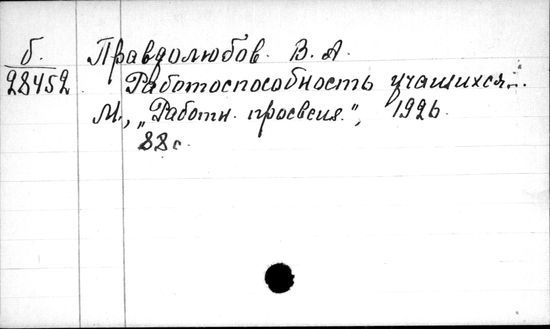 б. Правдолюбов В. А.
28452 Работоспособность учащихся...
М., „Работн. просвещ.”, 1926.
88с.